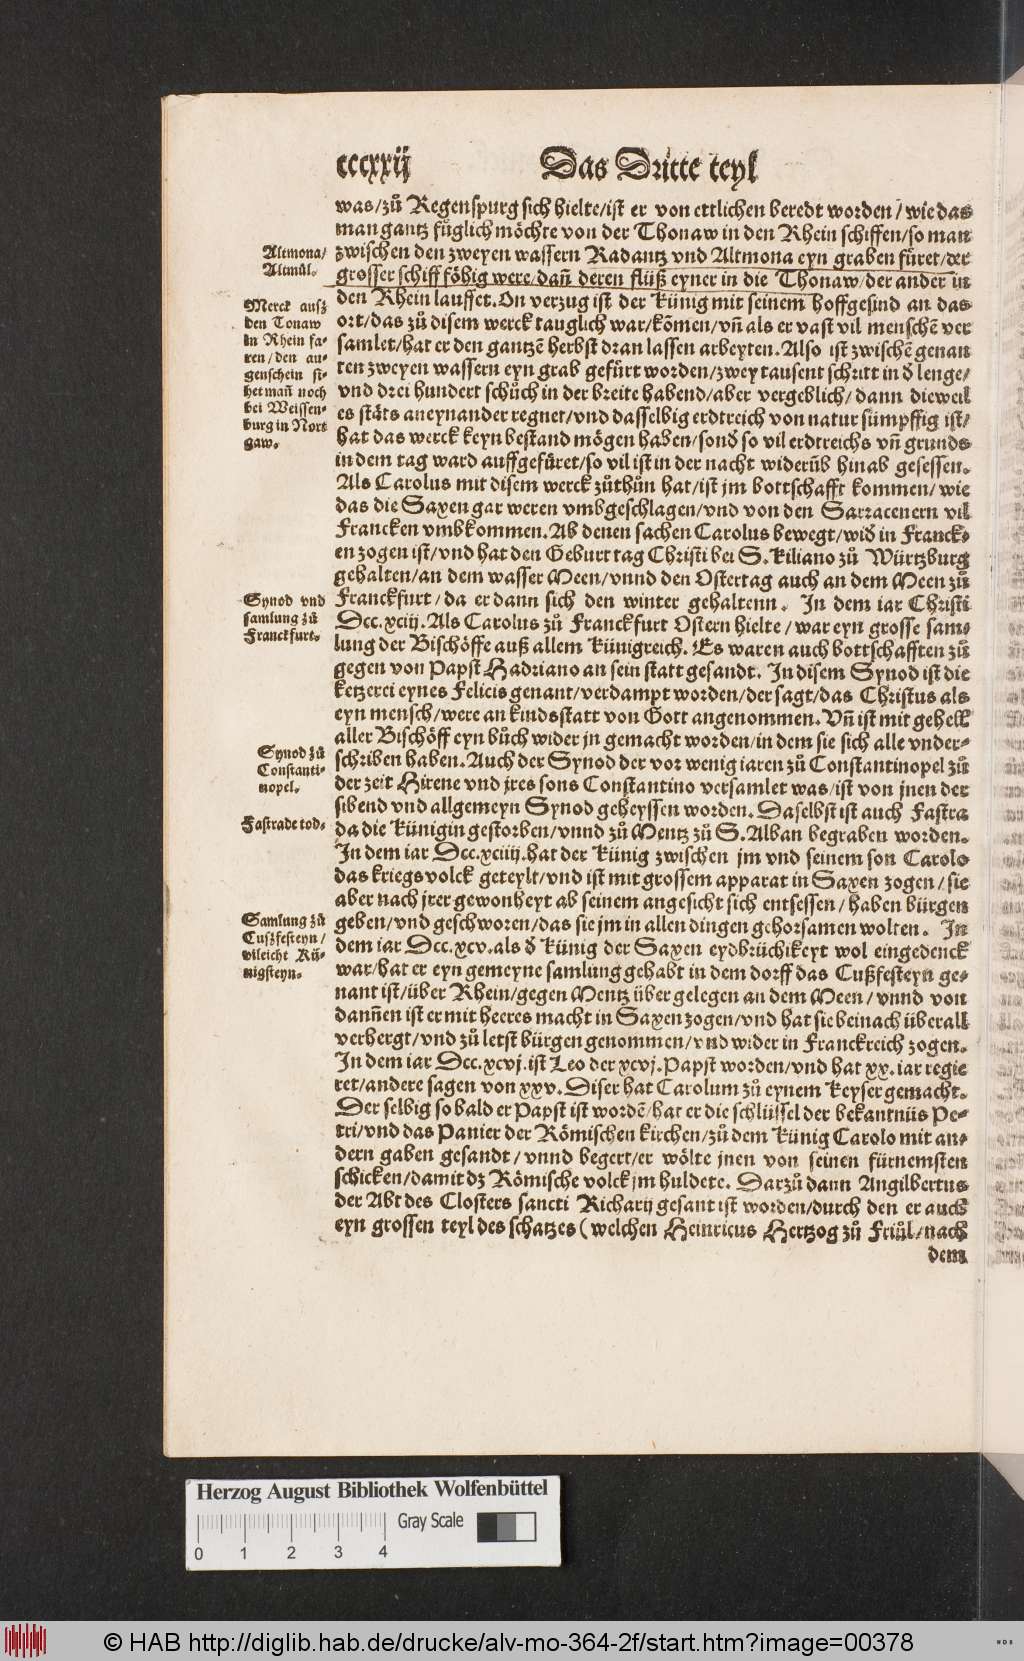 cccxxij Das Dritte teyl
was/zů Regenspurg sich hielte/ist er von ettlichen beredt worden/wie das
man gantz fůglich möchte von der Thonaw in den Rhein schiffen/so man
Altmona/
Altmül.
zwischen den zweyen wassern Radantz vnd Altmona eyn graben fůret/der
grosser schiff föhig were/dañ deren flüß eyner in die Thonaw/der ander in
Merck ausz
den Tonaw
in Rhein fa-
ren/den au-
genschein si-
het mañ noch
bei Weissen-
burg in Nort
gaw.
den Rhein lauffet. On verzug ist der Künig mit seinem hoffgesind an das
ort/das zů disem werck tauglich war/kõmen/vñ als er vast vil menschẽ ver
samlet/hat er den gantzẽ herbst dran lassen arbeyten. Also ist zwischẽ genan
ten zweyen wassern eyn grab gefůrt worden/zwey tausent schritt in d̄ lenge/
vnd drei hundert schůch in der breite habend/aber vergeblich/dann dieweil
es stäts aneynander regnet/vnd dasselbig erdtreich von natur sümpffig ist/
hat das werck keyn bestand mögen haben/sond̄ so vil erdtreichs vñ grunds
in dem tag ward auffgefůret/so vil ist in der nacht widerũb hinab gesessen.
Als Carolus mit disem werck zůthůn hat/ist jm bottschafft kommen/wie
das die Saxen gar weren vmbgeschlagen/vnd von den Sarracenern vil
Francken vmbkommen. Ab denen sachen Carolus bewegt/wid̄ in Franck-
en zogen ist/vnd hat den Geburt tag Christi bei S. Kiliano zů Würtzburg
gehalten/an dem wasser Meen/vnnd den Ostertag auch an dem Meen zů
Synod vnd
samlung zů
Franckfurt.
Franckfurt/da er dann sich den winter gehaltenn. In dem iar Christi
Dcc.xciij. Als Carolus zů Franckfurt Ostern hielte/war eyn grosse sam-
lung der Bischöffe auß allem Künigreich. Es waren auch bottschafften zů
gegen von Papst Hadriano an sein statt gesandt. In disem Synod ist die
ketzerei eynes Felicis genant/verdampt worden/der sagt/das Christus als
eyn mensch/were an kindsstatt von Gott angenommen. Vñ ist mit gehell
aller Bischöff eyn bůch wider jn gemacht worden/in dem sie sich alle vnder-
Synod zů
Constanti-
nopel.
schriben haben. Auch der Synod der vor wenig iaren zů Constantinopel zů
der zeit Hirene vnd jres sons Constantino versamlet was/ist von jnen der
sibend vnd allgemeyn Synod geheyssen worden. Daselbst ist auch Fastra
Fastrade tod.
da die Künigin gestorben/vnnd zů Mentz zů S. Alban begraben worden.
In dem iar Dcc.xciiij. hat der Künig zwischen jm vnd seinem son Carolo
das kriegsvolck geteylt/vnd ist mit grossem apparat in Saxen zogen/sie
aber nach jrer gewonheyt ab seinem angesicht sich entsessen/haben bürgen
Samlung zů
Cuszfesteyn/
vileicht Kü-
nigsteyn.
geben/vnd geschworen/das sie jm in allen dingen gehorsamen wolten. In
dem iar Dcc.xcv. als d̄ Künig der Saxen eydbrüchikeyt wol eingedenck
war/hat er eyn gemeyne samlung gehabt in dem dorff das Cußfesteyn ge-
nant ist/über Rhein/gegen Mentz über gelegen an dem Meen/vnnd von
dannen ist er mit heeres macht in Saxen zogen/vnd hat sie beinach überall
verhergt/vnd zů letst bürgen genommen/vnd wider in Franckreich zogen.
In dem iar Dcc.xcvj. ist Leo der xcvj. Papst worden/vnd hat xx. iar regie
ret/andere sagen von xxv. Diser hat Carolum zů eynem Keyser gemacht.
Der selbig so bald er Papst ist wordẽ/hat er die schlüssel der bekantnüs Pe-
tri/vnd das Panier der Römischen kirchen/zů dem Künig Carolo mit an-
dern gaben gesandt/vnnd begert/er wölte jnen von seinen fürnemsten
schicken/damit dz Römische volck jm huldete. Darzů dann Angilbertus
der Abt des Closters sancti Richarij gesant ist worden/durch den er auch
eyn grossen teyl des schatzes (welchen Heinricus Hertzog zů Friůl/nach
dem
Herzog August Bibliothek Wolfenbüttel
Gray Scale
0 1 2 3 4
© HAB http://diglib.hab.de/drucke/alv-mo-364-2f/start.htm?image=00378